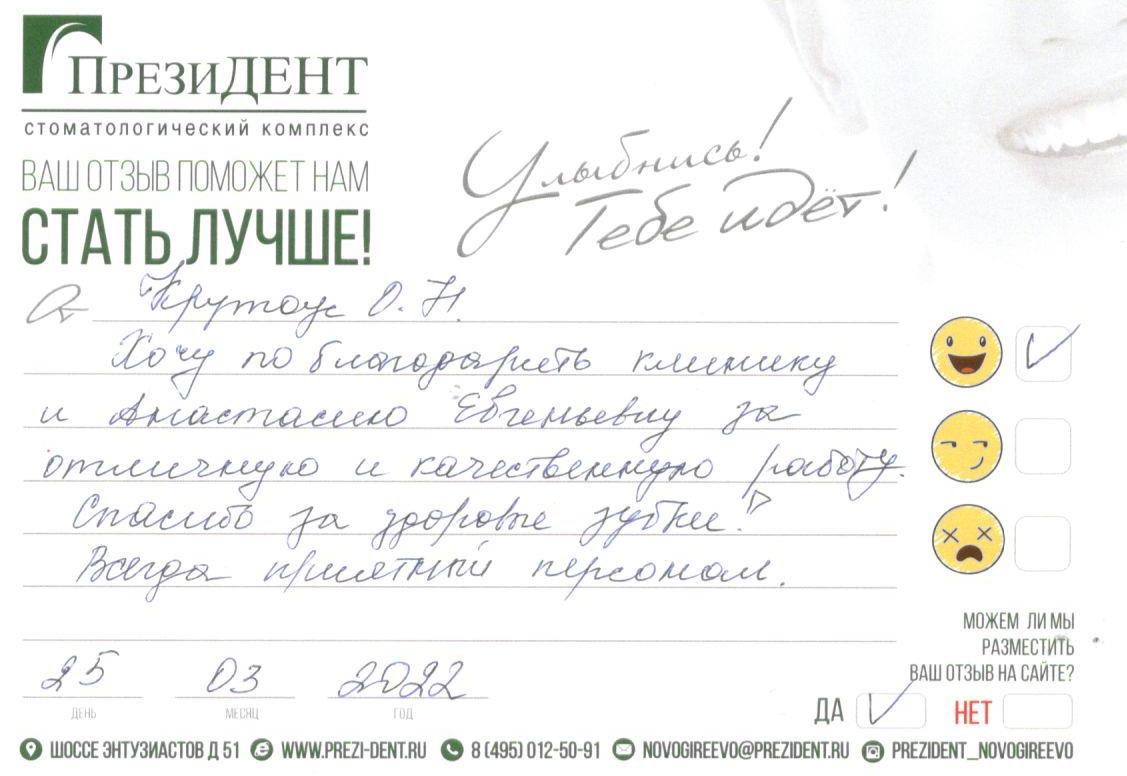 ПрезиДЕНТ
стоматологический комплекс
ВАШ ОТЗЫВ ПОМОЖЕТ НАМ
СТАТЬ ЛУЧШЕ!
Улыбнись!
Тебе идёт!
От Крутоус О. Н.
Хочу поблагодарить клинику
и Анастасию Евгеньевну за
отличную и качественную работу.
Спасибо за здоровые зубки!
Всегда приятный персонал.
25 03 2022
ДЕНЬ МЕСЯЦ ГОД
МОЖЕМ ЛИ МЫ
РАЗМЕСТИТЬ
ВАШ ОТЗЫВ НА САЙТЕ?
ДА НЕТ
ШОССЕ ЭНТУЗИАСТОВ Д 51 WWW.PREZI-DENT.RU 8 (495) 012-50-91 NOVOGIREEVO@PREZIDENT.RU PREZIDENT_NOVOGIREEVO